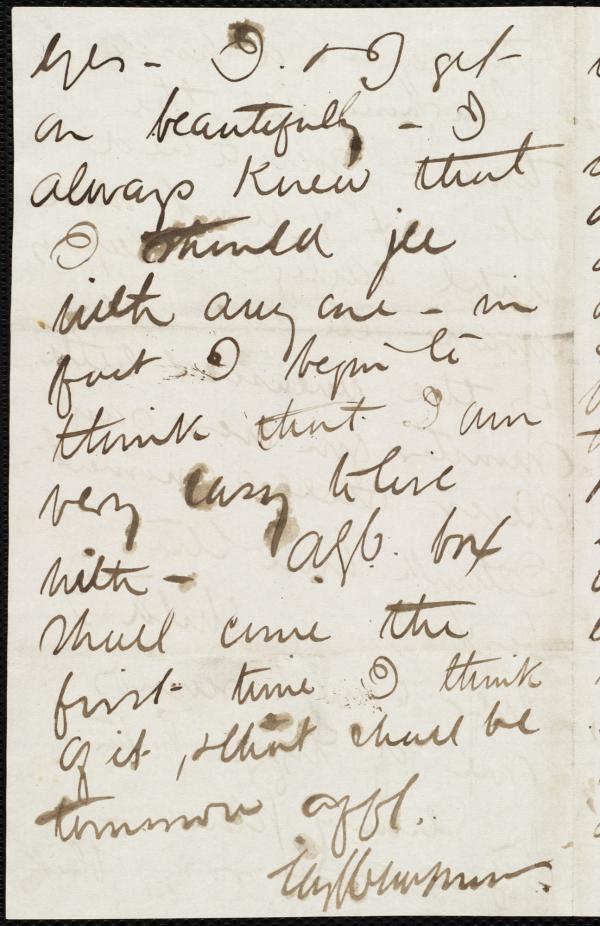 eyes - D. & I get
on beautifully - I
always knew that
I should jee
with any one - in
fact I begin to
think that I am
very easy to live
with - box
shall come the
first time I think
of it, & that shall be
tomorrow affl.